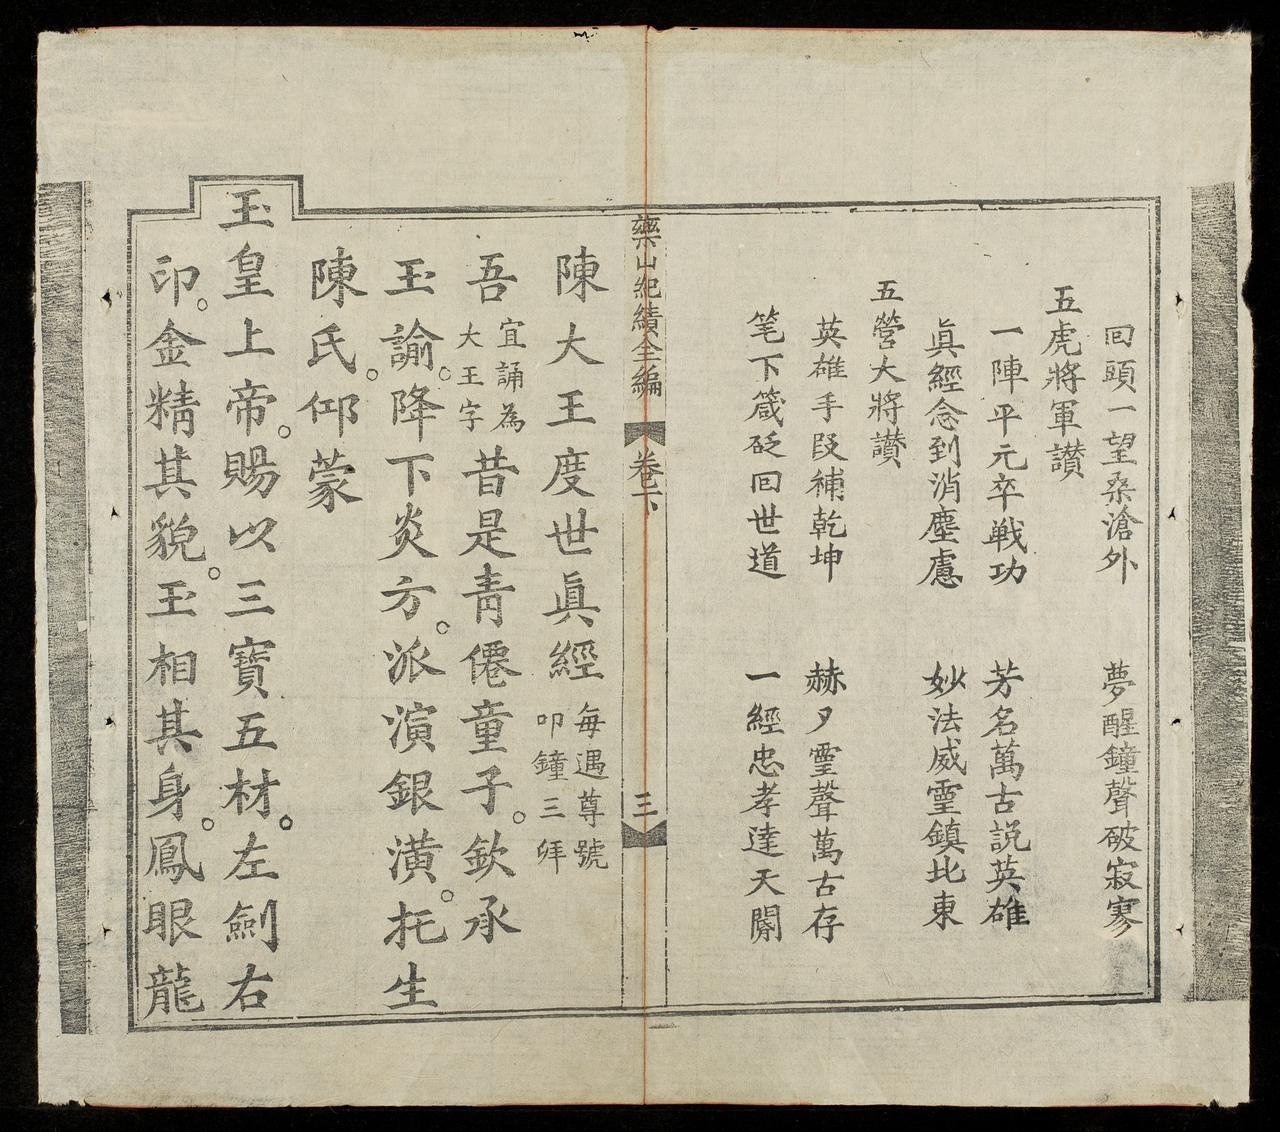 回頭一望桑滄外 夢醒鐘聲破寂寥
五虎將軍讃
一陣平元卒戦功 芳名萬古説英雄
眞經念到消塵慮 妙法威霊鎮北東
五營大將讃
英雄手段補乾坤 赫夕霊聲萬古存
笔下箴砭回世道 一經忠孝達天閽
藥山紀績全編 卷下 三
陳大王度世眞經 每遇尊號
叩鐘三拜
吾 宜誦為
大王字 昔是青僊童子。欽承
玉諭。降下炎方。派演銀潢。托生
陳氏。仰蒙
玉皇上帝。賜以三寶五材。左劍右
印。金精其貌。玉相其身。鳳眼龍